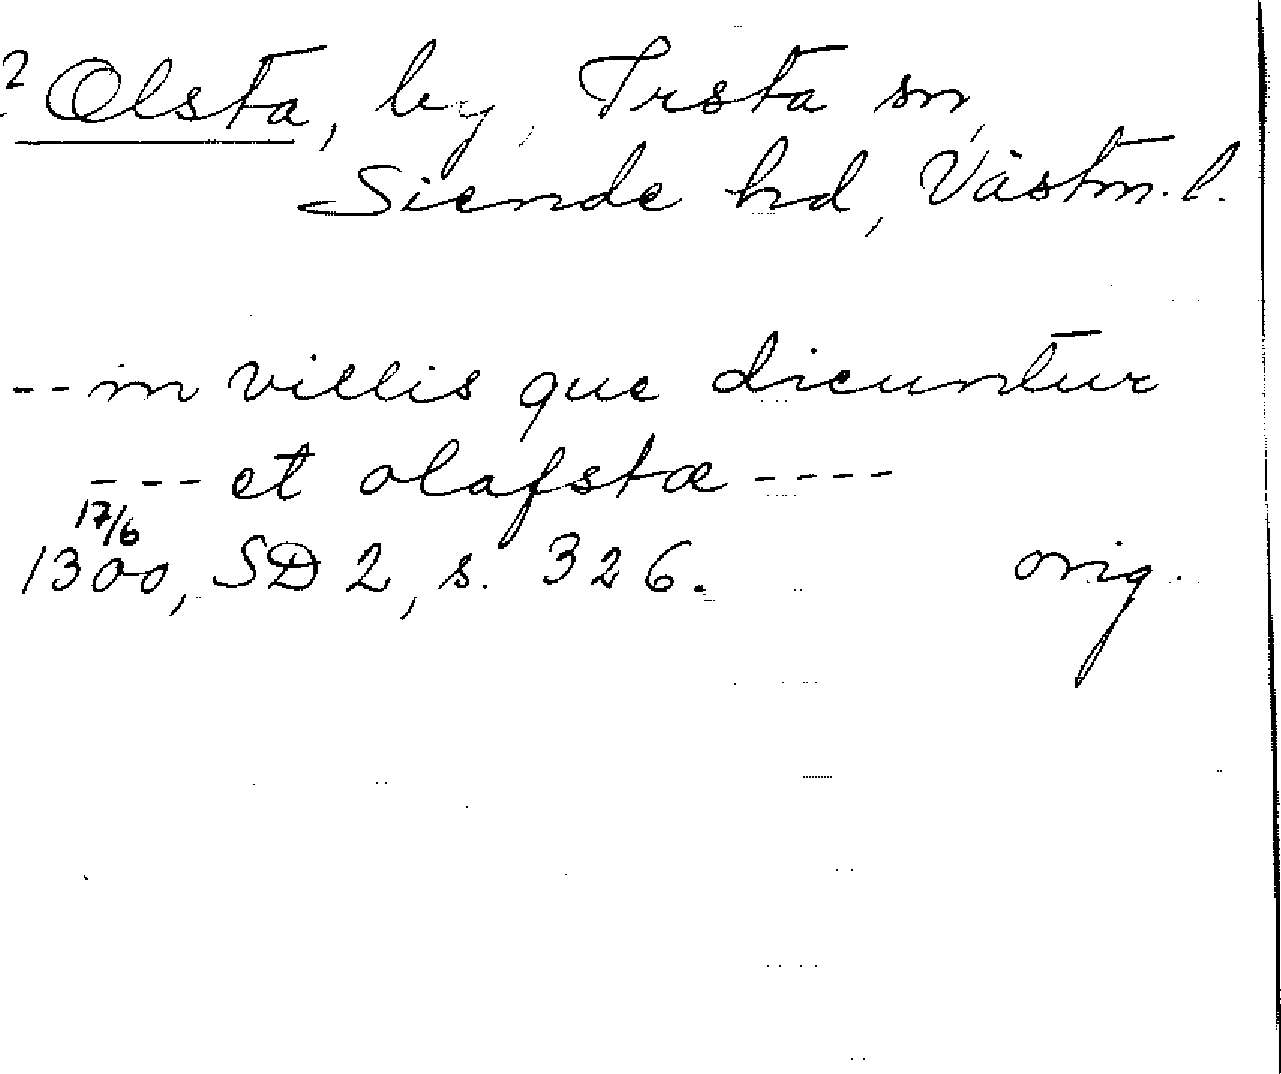 ? Olsta, by, Irsta sn,
Siende hd, Västm. l.
-- in villis que dicuntur
---- et olafstæ ----
17/6
1300, SD 2, s. 326. orig.